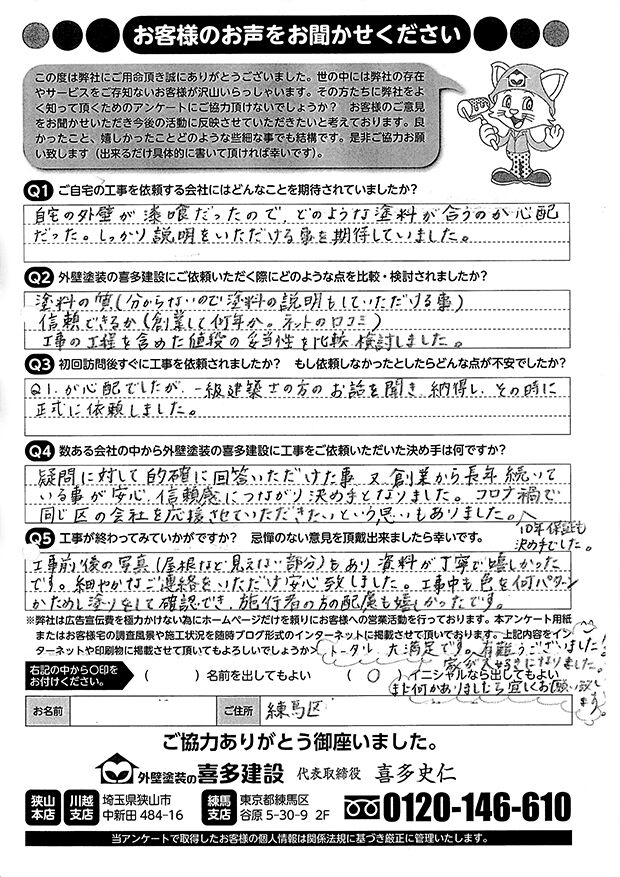 お客様のお声をお聞かせください
この度は弊社にご用命頂き誠にありがとうございました。世の中には弊社の存在
やサービスをご存知ないお客様が沢山いらっしゃいます。その方たちに弊社をよ
く知って頂くためのアンケートにご協力頂けないでしょうか？　お客様のご意見
をお聞かせいただき今後の活動に反映させていただきたいと考えております。良
かったこと、嬉しかったことどのような些細な事でも結構です。是非ご協力お願
い致します（出来るだけ具体的に書いて頂ければ幸いです）。
Q1 ご自宅の工事を依頼する会社にはどんなことを期待されていましたか？
自宅の外壁が漆喰だったので、どのような塗料が合うのか心配
だった。しっかり説明をいただける事を期待していました。
Q2 外壁塗装の喜多建設にご依頼いただく際にどのような点を比較・検討されましたか？
塗料の質（分からないので塗料の説明もしていただける事）
信頼できるか（創業して何年か。ネットの口コミ）
工事の工程を含めた値段の妥当性を比較検討しました。
Q3 初回訪問後すぐに工事を依頼されましたか？　もし依頼しなかったとしたらどんな点が不安でしたか？
Q1.が心配でしたが、一級建築士の方のお話を聞き、納得し、その時に
正式に依頼しました。
Q4 数ある会社の中から外壁塗装の喜多建設に工事をご依頼いただいた決め手は何ですか？
疑問に対して的確に回答いただけた事、又創業から長年続いて
いる事が安心、信頼感につながり決め手となりました。コロナ禍で
同じ区の会社を応援させていただきたいという思いもありました。
10年保証も
決め手でした。
Q5 工事が終わってみていかがですか？　忌憚のない意見を頂戴出来ましたら幸いです。
工事前後の写真（屋根など見えない部分）もあり資料が丁寧で嬉しかった
です。細やかなご連絡をいただけ安心致しました。工事中も色を何パターン
かためし塗りをして確認でき、施行者の方の配慮も嬉しかったです。
※弊社は広告宣伝費を極力かけない為にホームページだけを頼りにお客様への営業活動を行っております。本アンケート用紙
またはお客様宅の調査風景や施工状況を随時ブログ形式のインターネットに掲載させて頂いております。上記内容をイン
ターネットや印刷物に掲載させて頂いてもよろしいでしょうか
トータル、大満足です。有難うございました!
家が大好きになりました。
また何かありましたら宜しくお願い致し
ます。
右記の中から〇印を
お付けください。
（　　）名前を出してもよい　（ ○ ）イニシャルなら出してもよい
お名前　ご住所　練馬区
ご協力ありがとう御座いました。
外壁塗装の喜多建設 代表取締役　喜多史仁
狭山本店 川越支店 埼玉県狭山市中新田 484-16
練馬支店 東京都練馬区谷原 5-30-9 2F
0120-146-610
当アンケートで取得したお客様の個人情報は関係法規に基づき厳正に管理いたします。